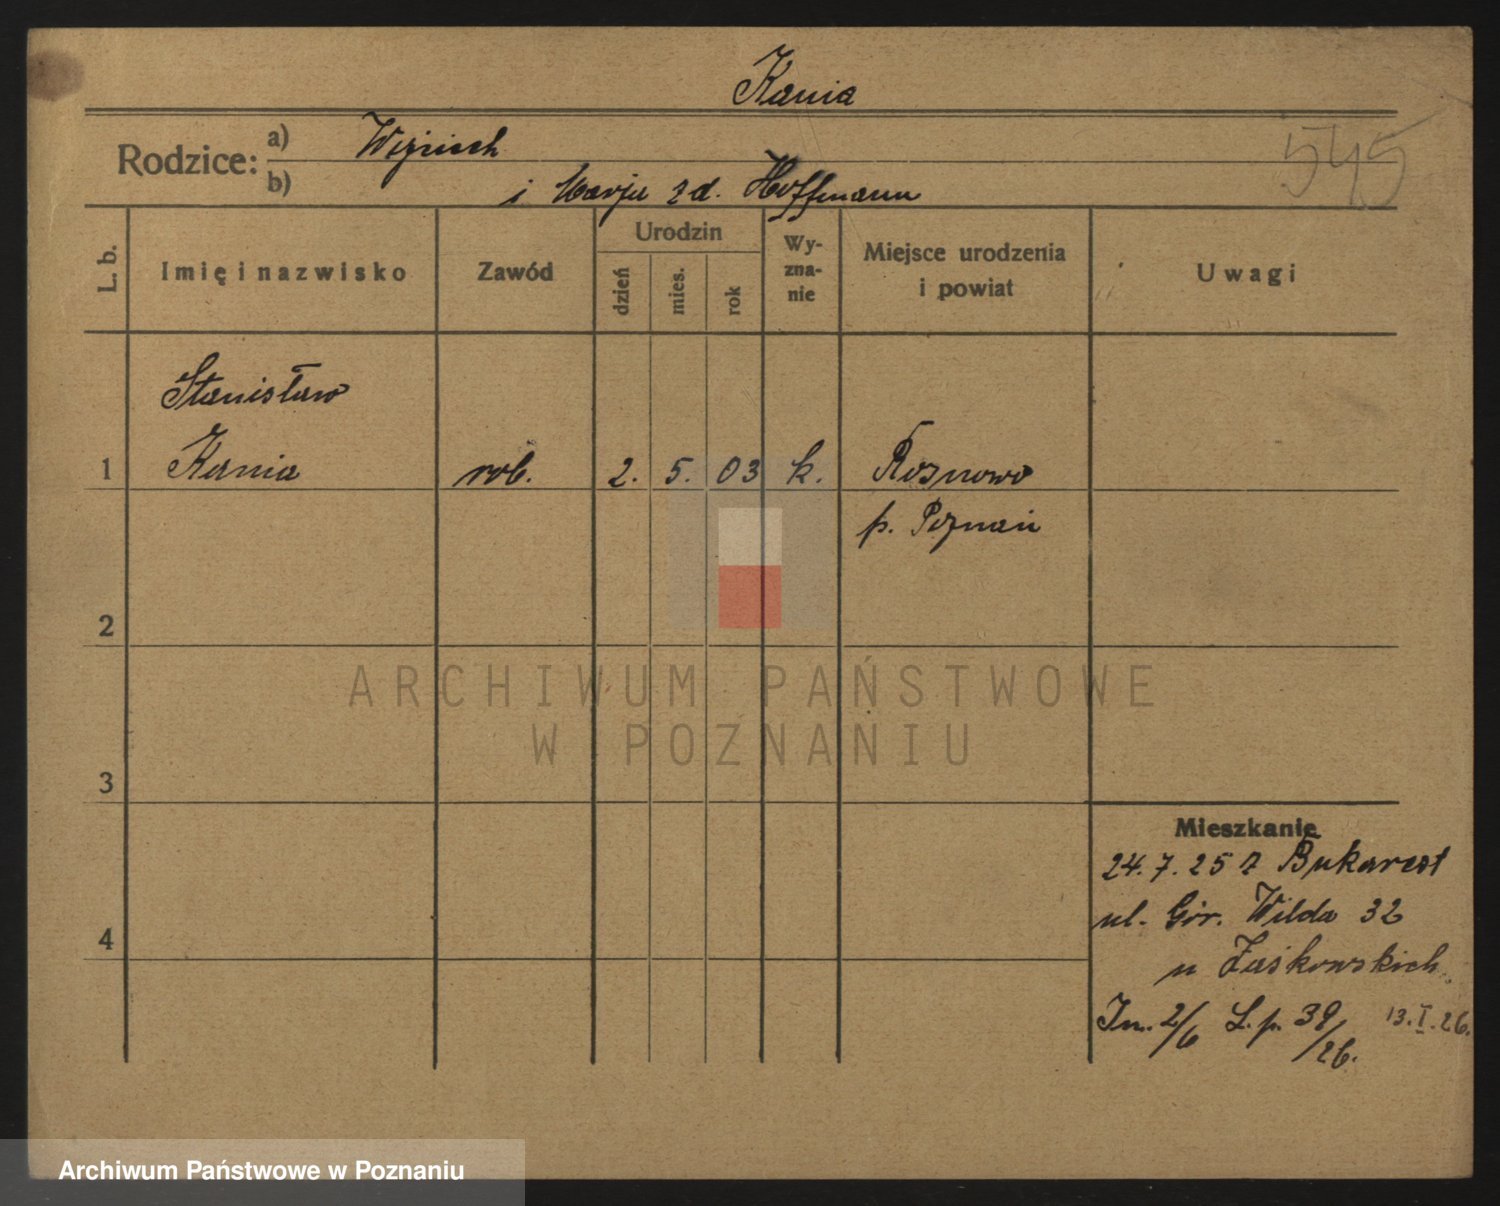 Kania
545
Rodzice:
a) Wojciech
b) i Marja z d. Hoffmann
L. b.
Imię i nazwisko
Zawód
Urodzin
dzień
mies.
rok
Wy-
zna-
nie
Miejsce urodzenia
i powiat
Uwagi
Stanisław
1 Kania rob. 2. 5. 03 k. Rosnowo
p. Poznań
2
3
4
Mieszkanie
24. 7. 25 z Bukarest
ul. Gór. Wilda 32
u Żaskowskich
2/6 L. p. 39/26. 13. I. 26.
ARCHIWUM PAŃSTWOWE
W POZNANIU
Archiwum Państwowe w Poznaniu